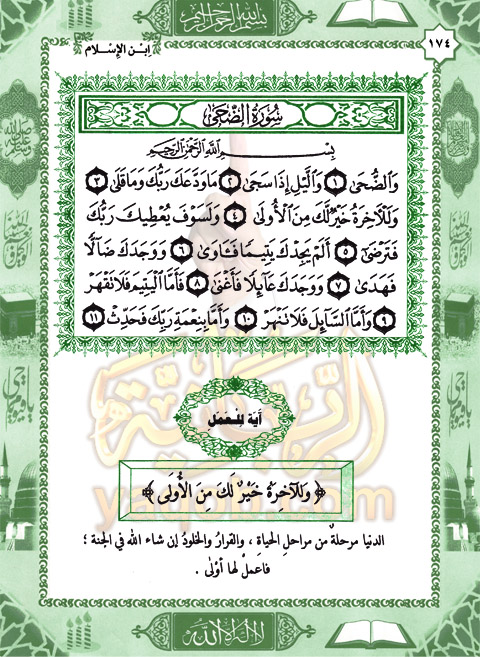 بسم الله الرحمن الرحيم
ابن الإسلام
١٧٤
سُورَةُ الضُّحَىٰ
بِسْمِ اللَّهِ الرَّحْمَٰنِ الرَّحِيمِ
وَالضُّحَىٰ ١ وَاللَّيْلِ إِذَا سَجَىٰ ٢ مَا وَدَّعَكَ رَبُّكَ وَمَا قَلَىٰ ٣
وَلَلْآخِرَةُ خَيْرٌ لَّكَ مِنَ الْأُولَىٰ ٤ وَلَسَوْفَ يُعْطِيكَ رَبُّكَ
فَتَرْضَىٰ ٥ أَلَمْ يَجِدْكَ يَتِيمًا فَآوَىٰ ٦ وَوَجَدَكَ ضَالًّا
فَهَدَىٰ ٧ وَوَجَدَكَ عَائِلًا فَأَغْنَىٰ ٨ فَأَمَّا الْيَتِيمَ فَلَا تَقْهَرْ
٩ وَأَمَّا السَّائِلَ فَلَا تَنْهَرْ ١٠ وَأَمَّا بِنِعْمَةِ رَبِّكَ فَحَدِّثْ ١١
آية للعمل
﴿ وَلَلآخِرَةُ خَيْرٌ لَكَ مِنَ الأُولَى ﴾
الدنيا مرحلةٌ من مراحلِ الحياةِ ، والقرارُ والخلودُ إن شاء الله في الجنة ؛
فاعملْ لها أوْلى .
لا إله إلا الله